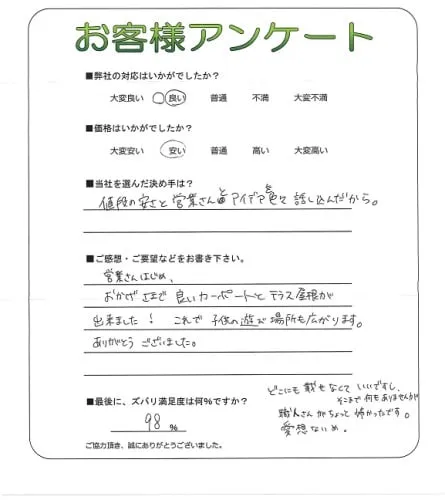 お客様アンケート
■弊社の対応はいかがでしたか?
大変良い 良い 普通 不満 大変不満
■価格はいかがでしたか?
大変安い 安い 普通 高い 大変高い
■当社を選んだ決め手は?
値段の安さと営業さんとアイデアを色々話し込んだから。
■ご感想・ご要望などをお書き下さい。
営業さんはじめ、
おかげさまで良いカーポートとテラス屋根が
出来ました! これで子供の遊び場所も広がります。
ありがとうございました。
■最後に、ズバリ満足度は何%ですか?
98 %
どこにも載せなくていいですし、
そこまで何もありませんが
職人さんがちょっと怖かったです。
愛想ないめ。
ご協力頂き、誠にありがとうございました。